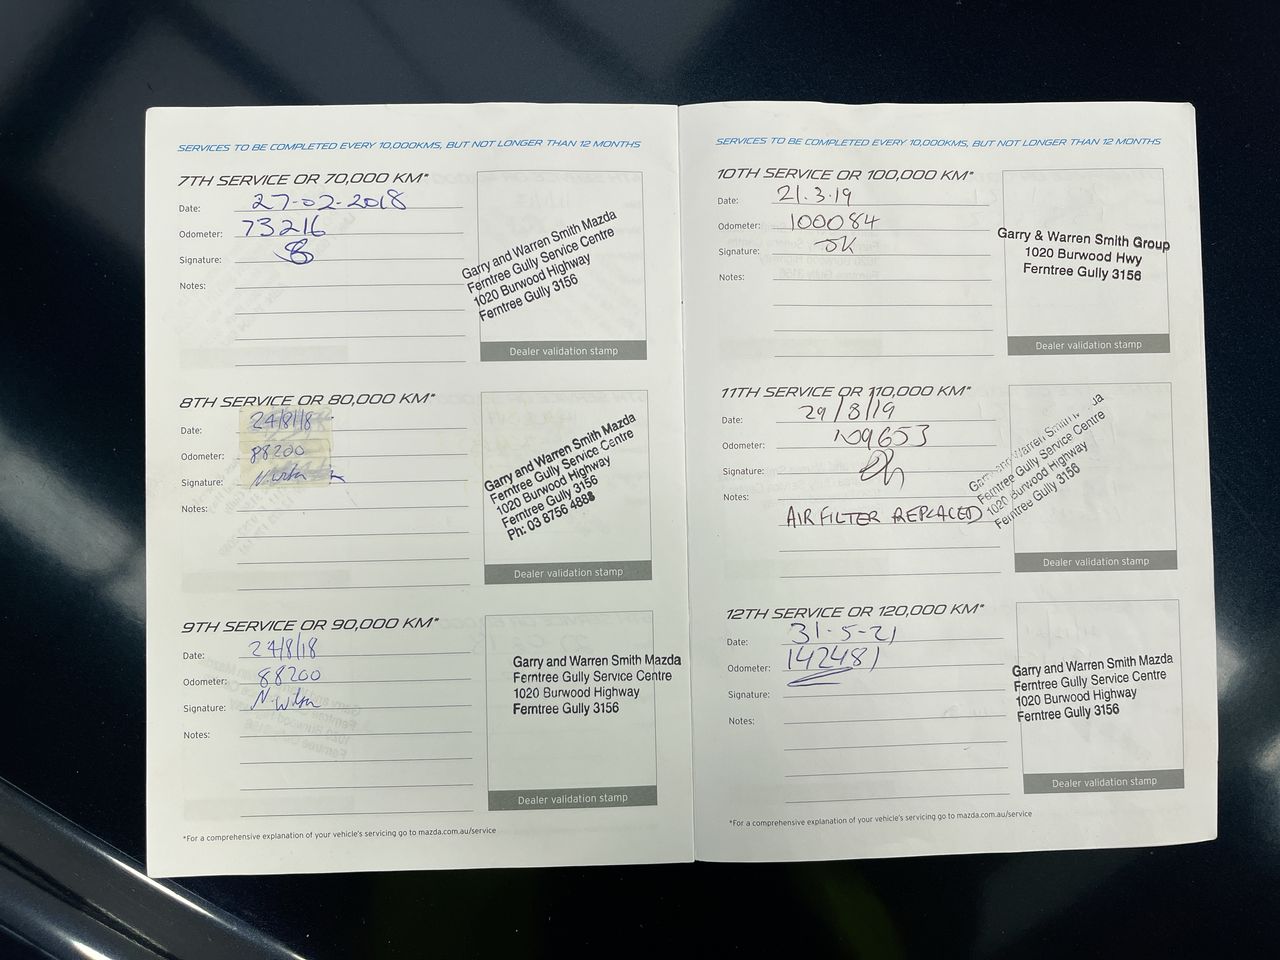 SERVICES TO BE COMPLETED EVERY 10,000KMS, BUT NOT LONGER THAN 12 MONTHS
7TH SERVICE OR 70,000 KM*
Date: 27-02-2018
Odometer: 73216
Signature:
Notes:
Garry and Warren Smith Mazda
Ferntree Gully Service Centre
1020 Burwood Highway
Ferntree Gully 3156
Dealer validation stamp
8TH SERVICE OR 80,000 KM*
Date: 24/8/18
Odometer: 88200
Signature: N. Wilson
Notes:
Garry and Warren Smith Mazda
Ferntree Gully Service Centre
1020 Burwood Highway
Ferntree Gully 3156
Ph: 03 8756 4888
Dealer validation stamp
9TH SERVICE OR 90,000 KM*
Date: 24/8/18
Odometer: 88200
Signature: N. Wilson
Notes:
Garry and Warren Smith Mazda
Ferntree Gully Service Centre
1020 Burwood Highway
Ferntree Gully 3156
Dealer validation stamp
*For a comprehensive explanation of your vehicle's servicing go to mazda.com.au/service
SERVICES TO BE COMPLETED EVERY 10,000KMS, BUT NOT LONGER THAN 12 MONTHS
10TH SERVICE OR 100,000 KM*
Date: 21.3.19
Odometer: 100084
Signature:
Notes:
Garry & Warren Smith Group
1020 Burwood Hwy
Ferntree Gully 3156
Dealer validation stamp
11TH SERVICE OR 110,000 KM*
Date: 29/8/19
Odometer: 109653
Signature:
Notes:
AIR FILTER REPLACED
Garry and Warren Smith Mazda
Ferntree Gully Service Centre
1020 Burwood Highway
Ferntree Gully 3156
Dealer validation stamp
12TH SERVICE OR 120,000 KM*
Date: 31-5-21
Odometer: 142481
Signature:
Notes:
Garry and Warren Smith Mazda
Ferntree Gully Service Centre
1020 Burwood Highway
Ferntree Gully 3156
Dealer validation stamp
*For a comprehensive explanation of your vehicle's servicing go to mazda.com.au/service